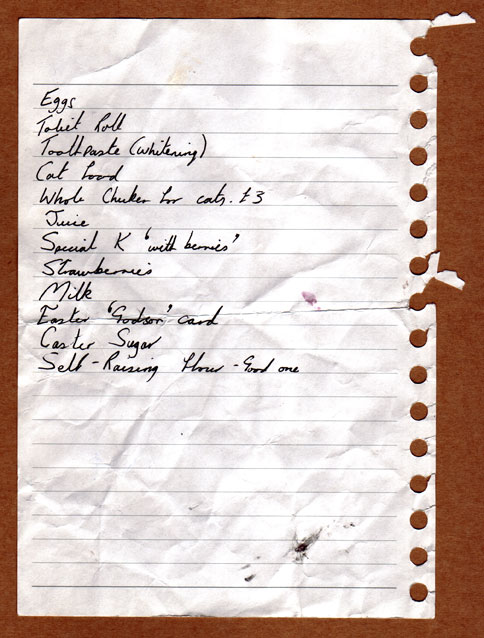 Eggs
Toliet Roll
Toothpaste (whitening)
Cat food
Whole Chicken for cats. £3
Juice
Special K 'with berries'
Strawberries
Milk
Easter 'Godson' card
Caster Sugar
Self-Raising flour - Good one